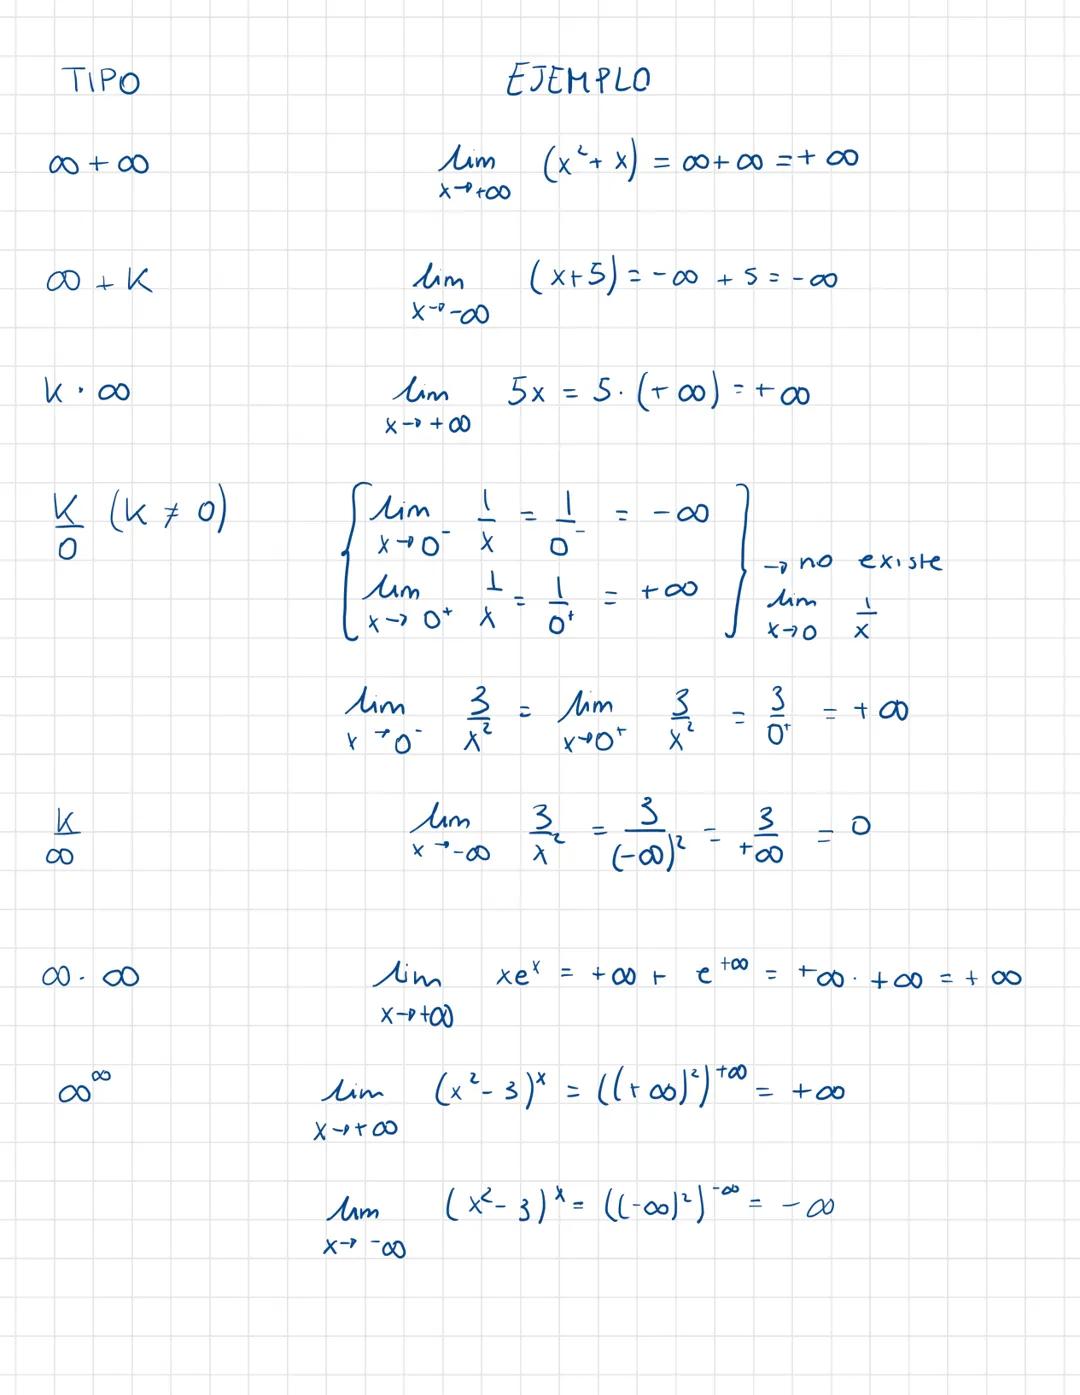 TIPO EJEMPLO
∞ + ∞ lim x→+∞ (x² + x) = ∞ + ∞ = + ∞
∞ + K lim x→-∞ (x + 5) = -∞ + 5 = -∞
k · ∞ lim x→+∞ 5x = 5 · (+∞) = +∞
K/0 (k ≠ 0) { lim x→0⁻ 1/x = 1/0⁻ = -∞
lim x→0⁺ 1/x = 1/0⁺ = +∞ } → no existe lim x→0 1/x
lim x→0⁻ 3/x² = lim x→0⁺ 3/x² = 3/0⁺ = +∞
k/∞ lim x→-∞ 3/x² = 3/(-∞)² = 3/+∞ = 0
∞ · ∞ lim x→+∞ xeˣ = +∞ + e^+∞ = +∞ · +∞ = +∞
∞^∞ lim x→+∞ (x² - 3)ˣ = ((+∞)²)^+∞ = +∞
lim x→-∞ (x² - 3)ˣ = ((-∞)²)^-∞ = -∞